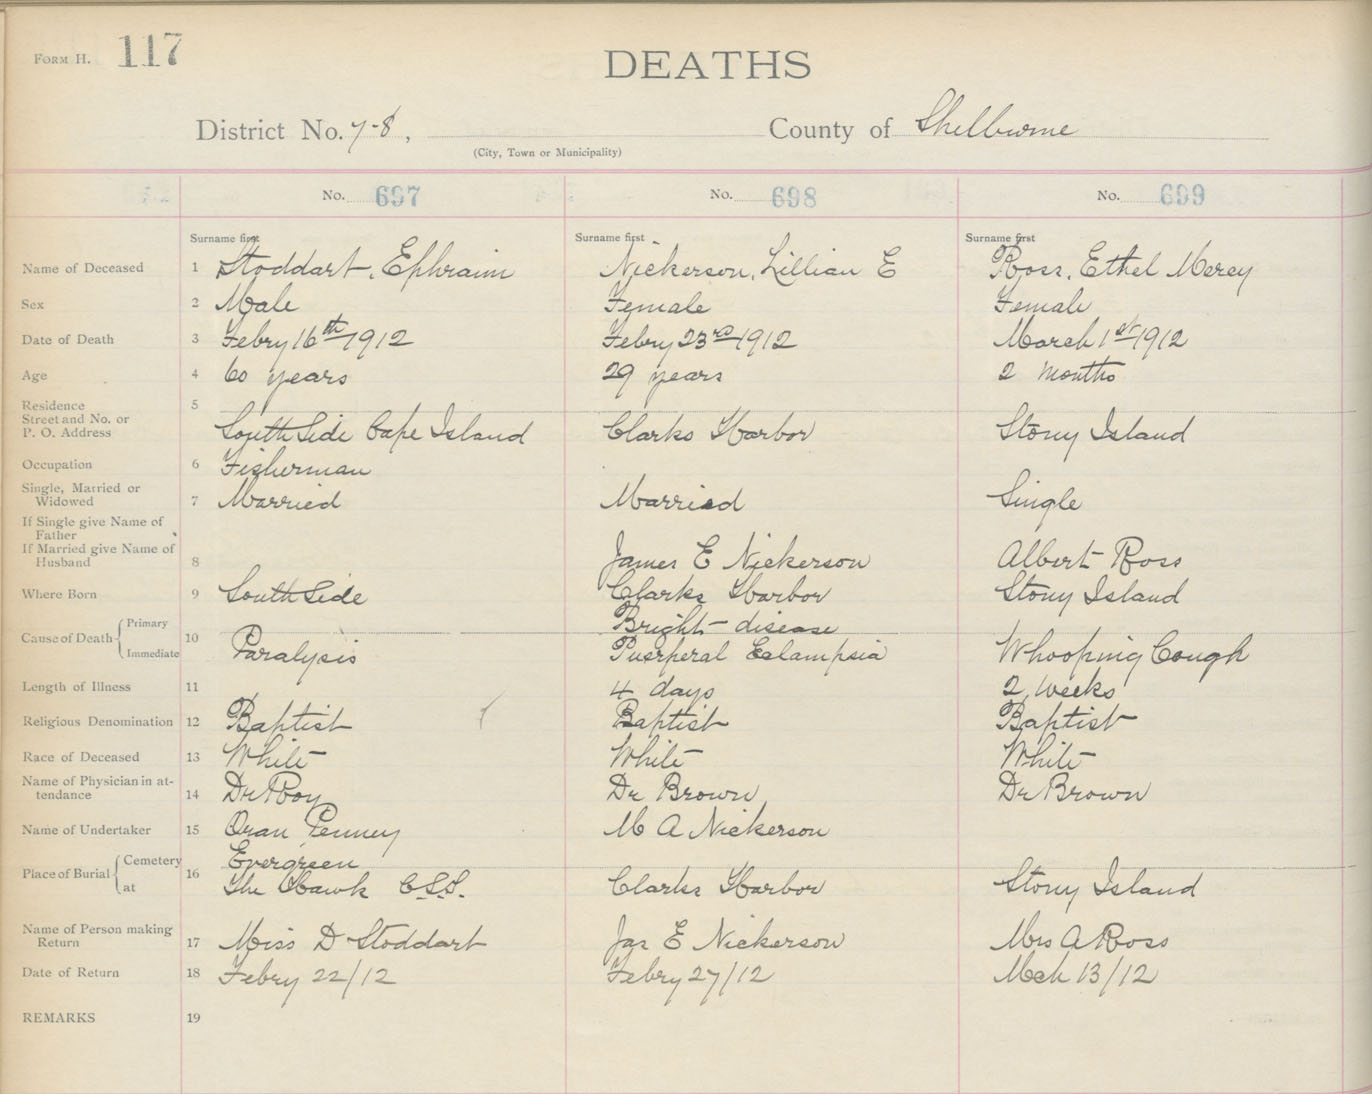 FORM H. 117
DEATHS
District No. 7-8, County of Shelburne
(City, Town or Municipality)
No. 697 No. 698 No. 699
Surname first Surname first Surname first
Name of Deceased 1 Stoddart, Ephraim Nickerson, Lillian E Ross, Ethel Mercy
Sex 2 Male Female Female
Date of Death 3 Febry 16th 1912 Febry 23rd 1912 March 1st 1912
Age 4 60 years 29 years 2 months
Residence 5
Street and No. or
P. O. Address South Side Cape Island Clarks Harbor Stony Island
Occupation 6 Fisherman
Single, Married or
Widowed 7 Married Married Single
If Single give Name of
Father
If Married give Name of
Husband 8 James E Nickerson Albert Ross
Where Born 9 South Side Clarks Harbor Stony Island
Primary Bright disease
Cause of Death 10 Paralysis Puerperal Eclampsia Whooping Cough
Immediate
Length of Illness 11 4 days 2 weeks
Religious Denomination 12 Baptist Baptist Baptist
Race of Deceased 13 White White White
Name of Physician in at-
tendance 14 Dr Roy Dr Brown Dr Brown
Name of Undertaker 15 Oran Penney M A Nickerson
Cemetery Evergreen
Place of Burial 16
at The Hawk C.S.I. Clarks Harbor Stony Island
Name of Person making
Return 17 Miss D Stoddart Jas E Nickerson Mrs A Ross
Date of Return 18 Febry 22/12 Febry 27/12 Mch 13/12
REMARKS 19